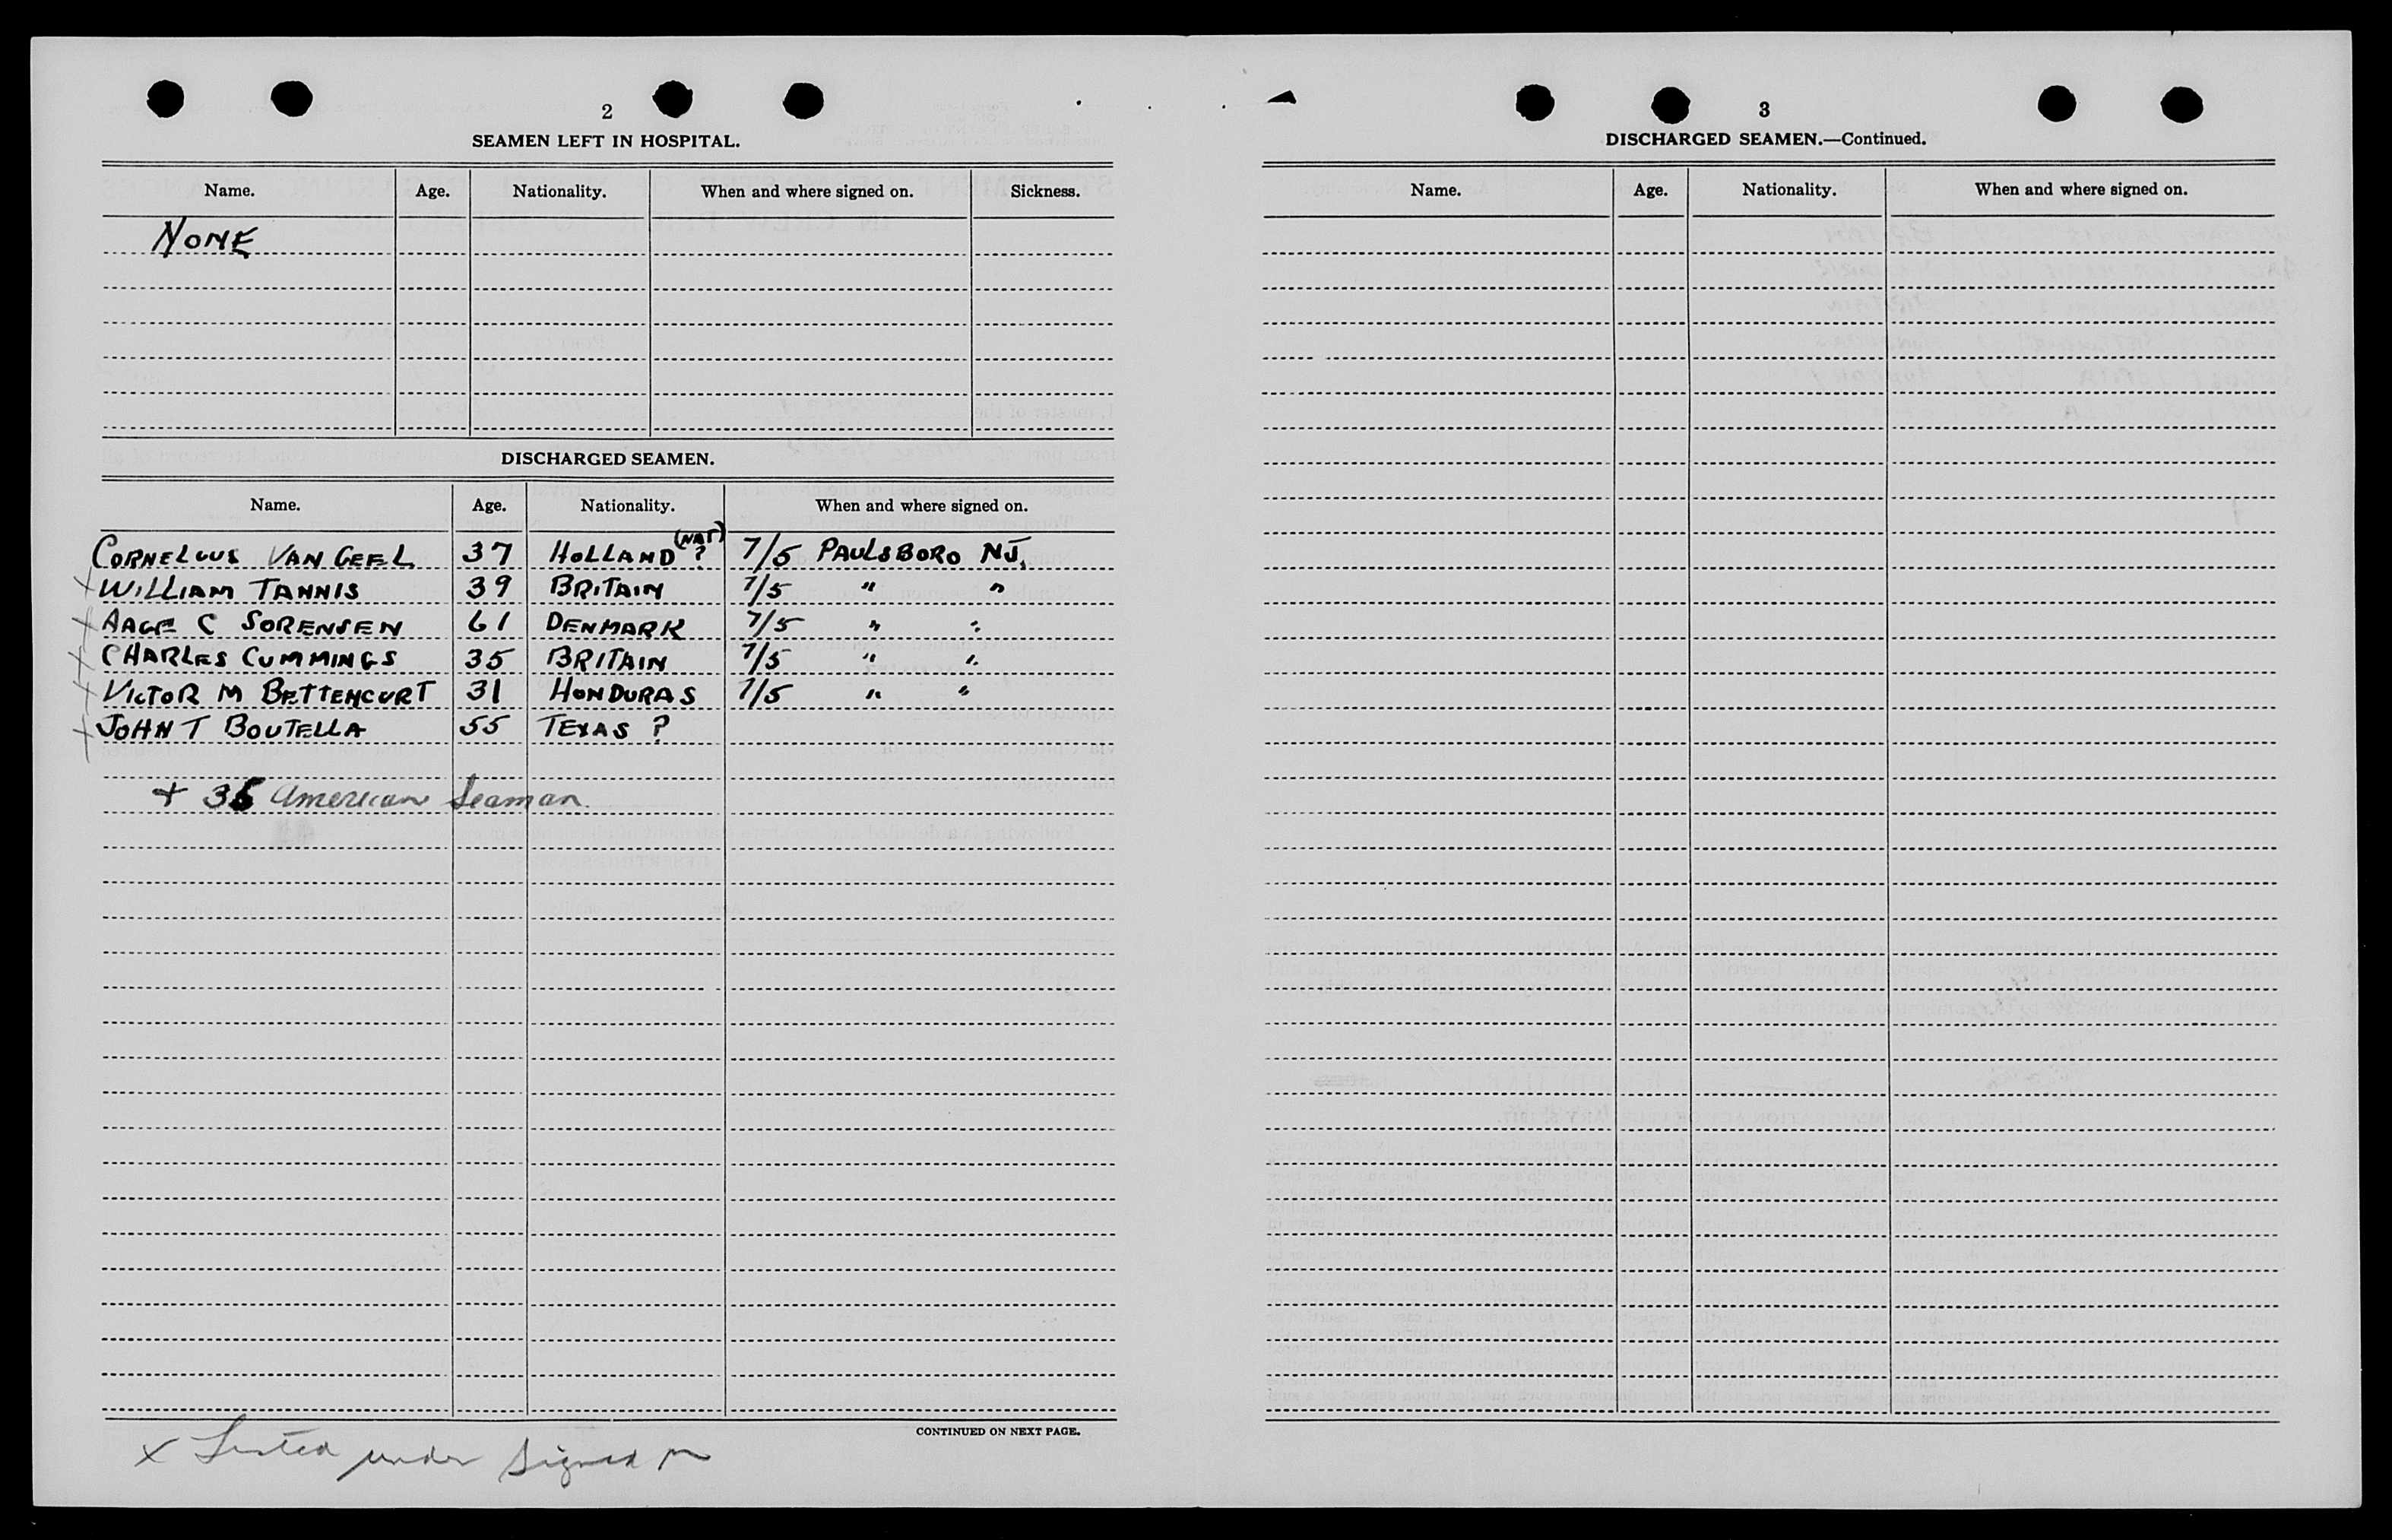 2
SEAMEN LEFT IN HOSPITAL.
Name. Age. Nationality. When and where signed on. Sickness.
NONE
DISCHARGED SEAMEN.
Name. Age. Nationality. When and where signed on.
CORNELOUS VAN GEEL 37 HOLLAND (NAT) ? 7/5 PAULSBORO NJ.
X WILLIAM TANNIS 39 BRITAIN 7/5 " "
X AAGE C SORENSEN 61 DENMARK 7/5 " "
X CHARLES CUMMINGS 35 BRITAIN 7/5 " "
X VICTOR M BETTENCURT 31 HONDURAS 7/5 " "
X JOHN T BOUTELLA 55 TEXAS ?
+ American Seaman.
CONTINUED ON NEXT PAGE.
x Listed under Signed on
3
DISCHARGED SEAMEN.—Continued.
Name. Age. Nationality. When and where signed on.